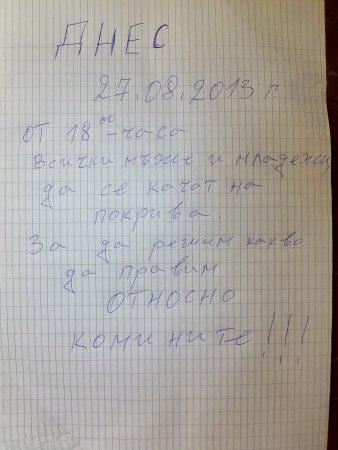 ДНЕС
27.08.2013 г.
ОТ 18⁰⁰-часа
Всички мъже и младежи
да се качат на
покрива.
За да решим какво
да правим
ОТНОСНО
комините!!!